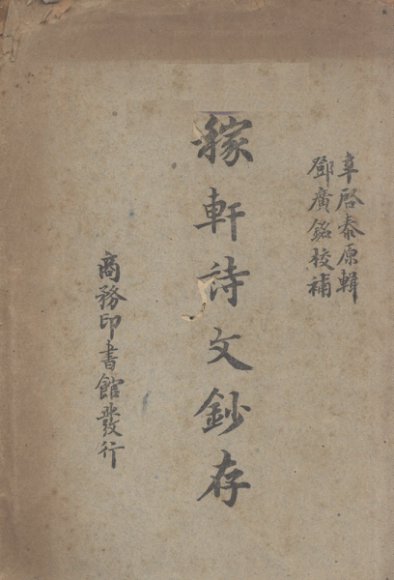 辛啓泰原輯
鄧廣銘校補
稼軒詩文鈔存
商務印書館發行